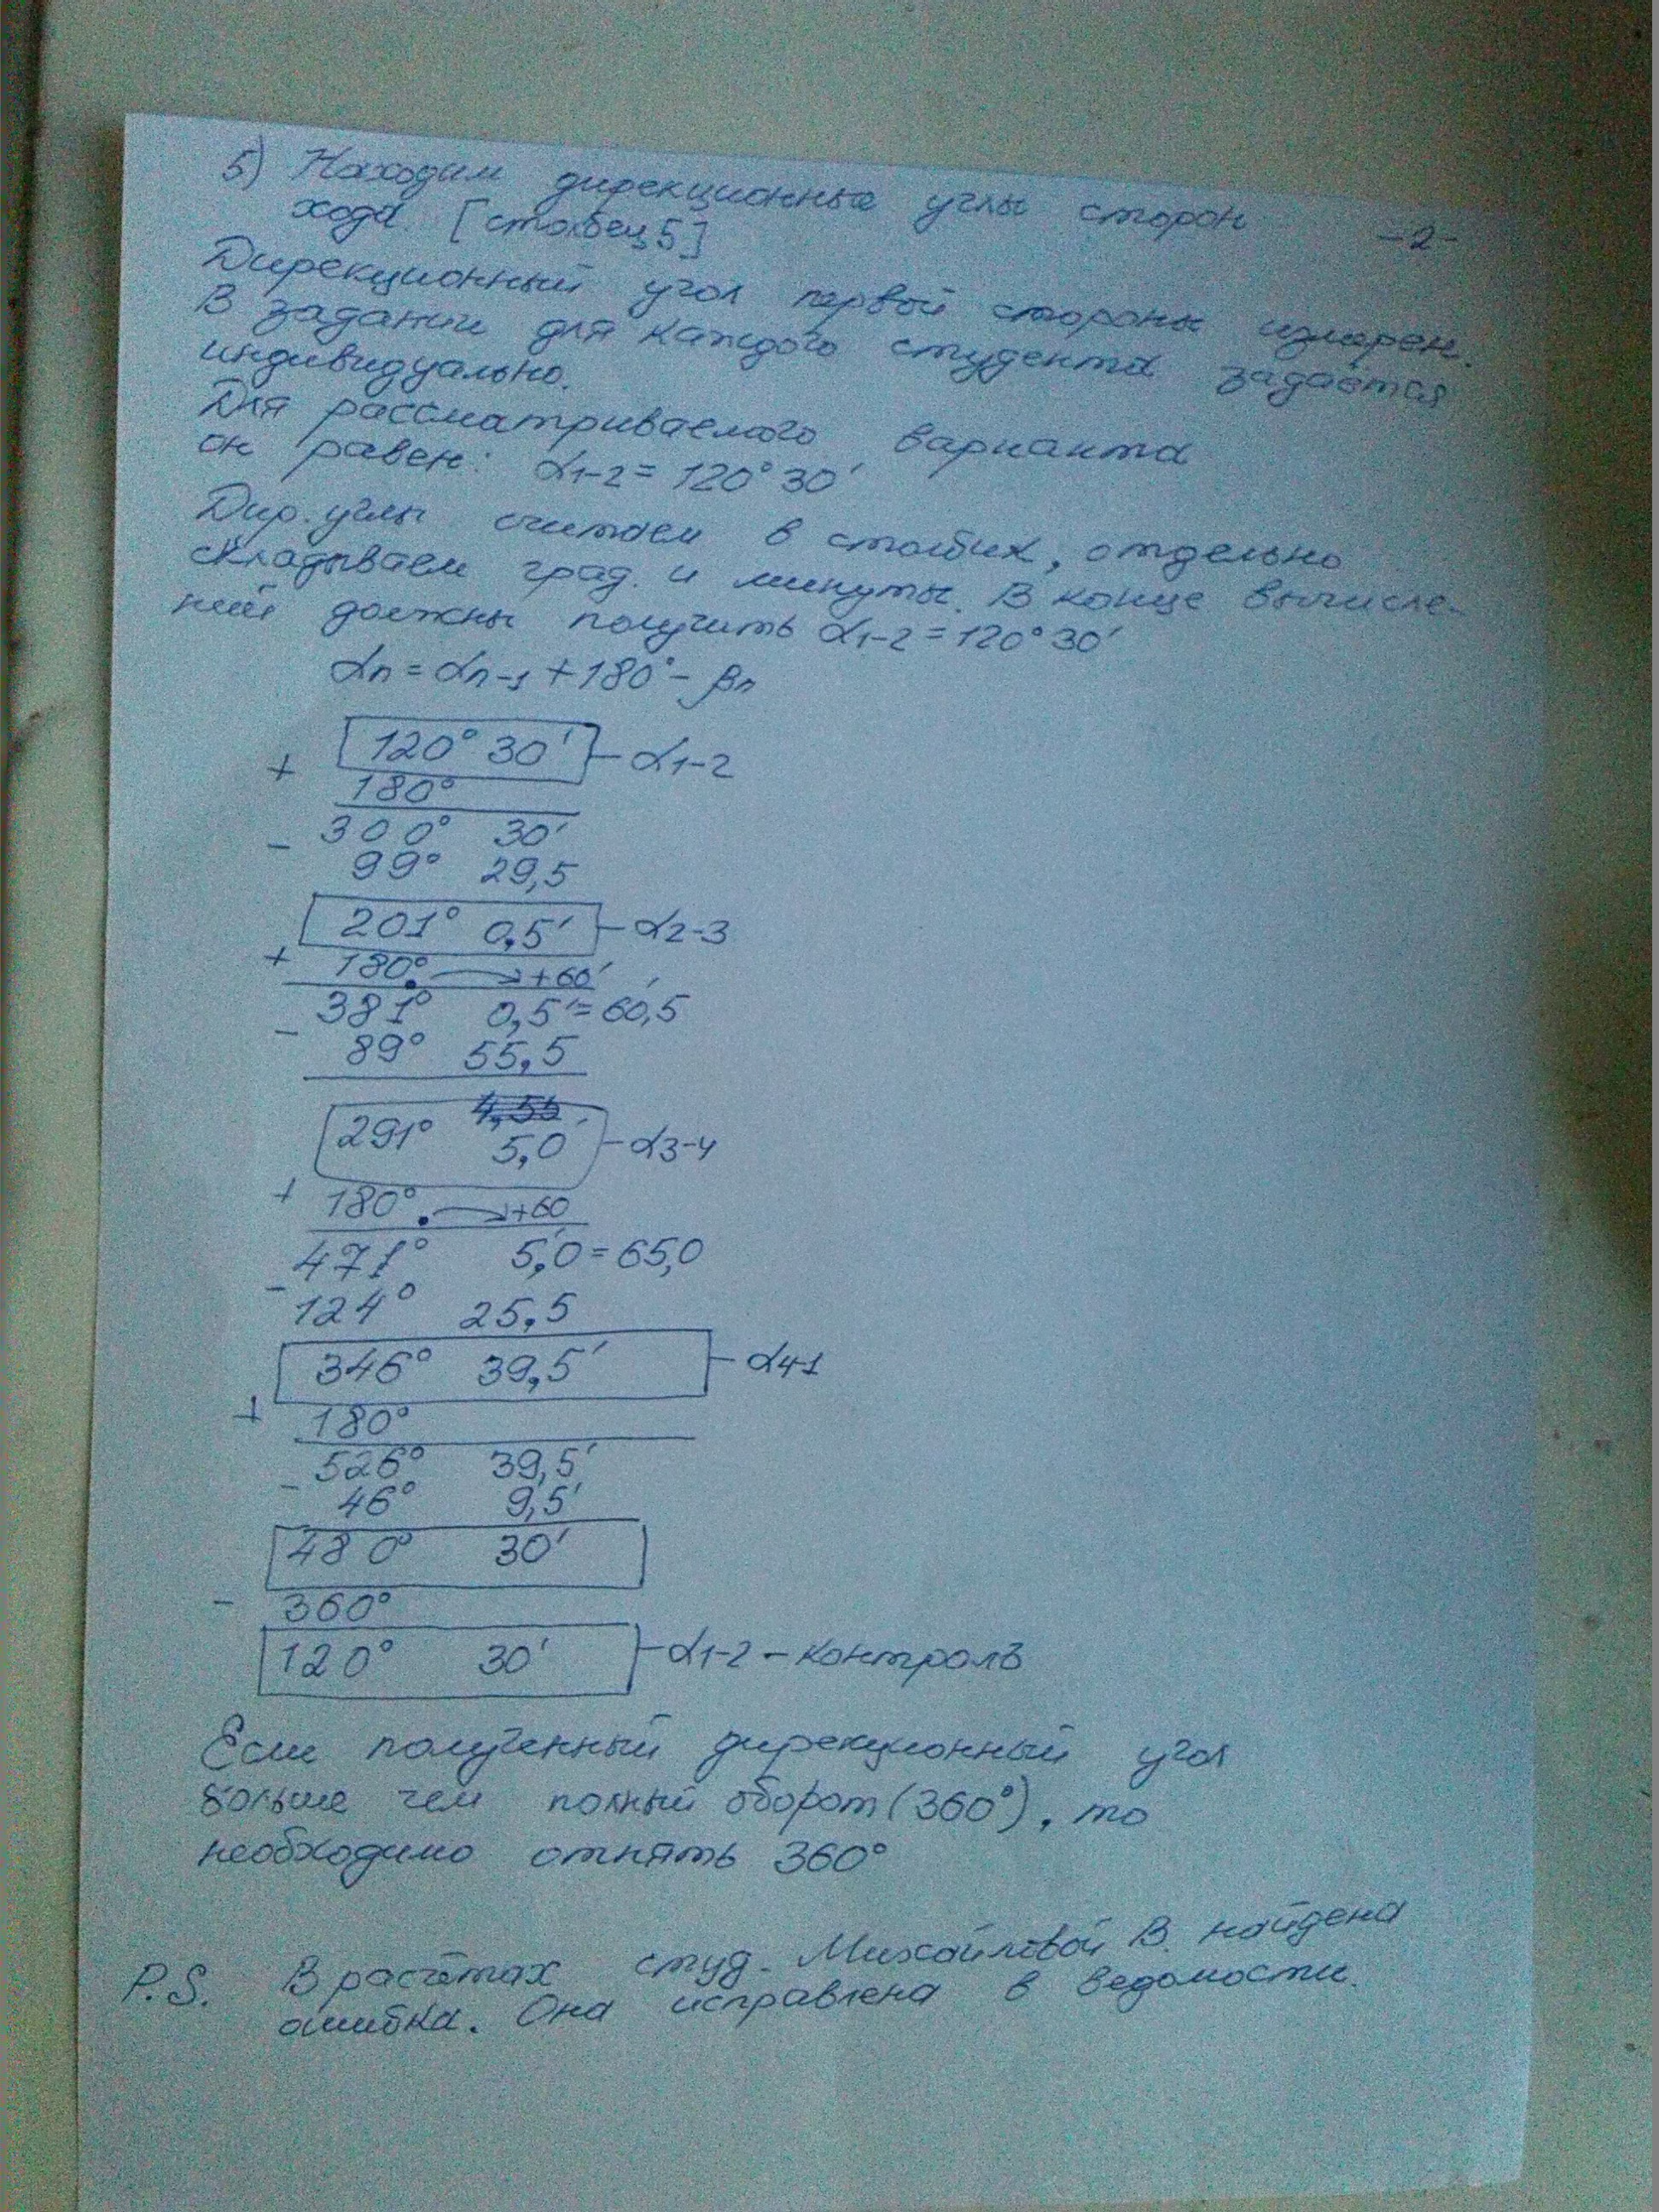 5) Находим дирекционные углы сторон
хода. [столбец 5]
-2-
Дирекционный угол первой стороны измерен.
В задании для каждого студента задаётся
индивидуально.
Для рассматриваемого варианта
он равен: α1-2 = 120° 30'
Дир. углы считаем в столбик, отдельно
складываем град. и минуты. В конце вычисле-
ний должны получить α1-2 = 120° 30'
αn = αn-1 + 180° - βn
+ 120° 30' - α1-2
180°
300° 30'
- 99° 29,5
201° 0,5' - α2-3
+ 180° → +60'
381° 0,5' = 60,5'
- 89° 55,5
4,55
291° 5,0 - α3-4
+ 180° → +60
471° 5,0' = 65,0
- 124° 25,5
346° 39,5' - α4-1
+ 180°
526° 39,5'
- 46° 9,5'
480° 30'
- 360°
120° 30' - α1-2 - контроль
Если полученный дирекционный угол
больше чем полный оборот (360°), то
необходимо отнять 360°
P.S. В расчётах студ. Михайловой В. найдена
ошибка. Она исправлена в ведомости.